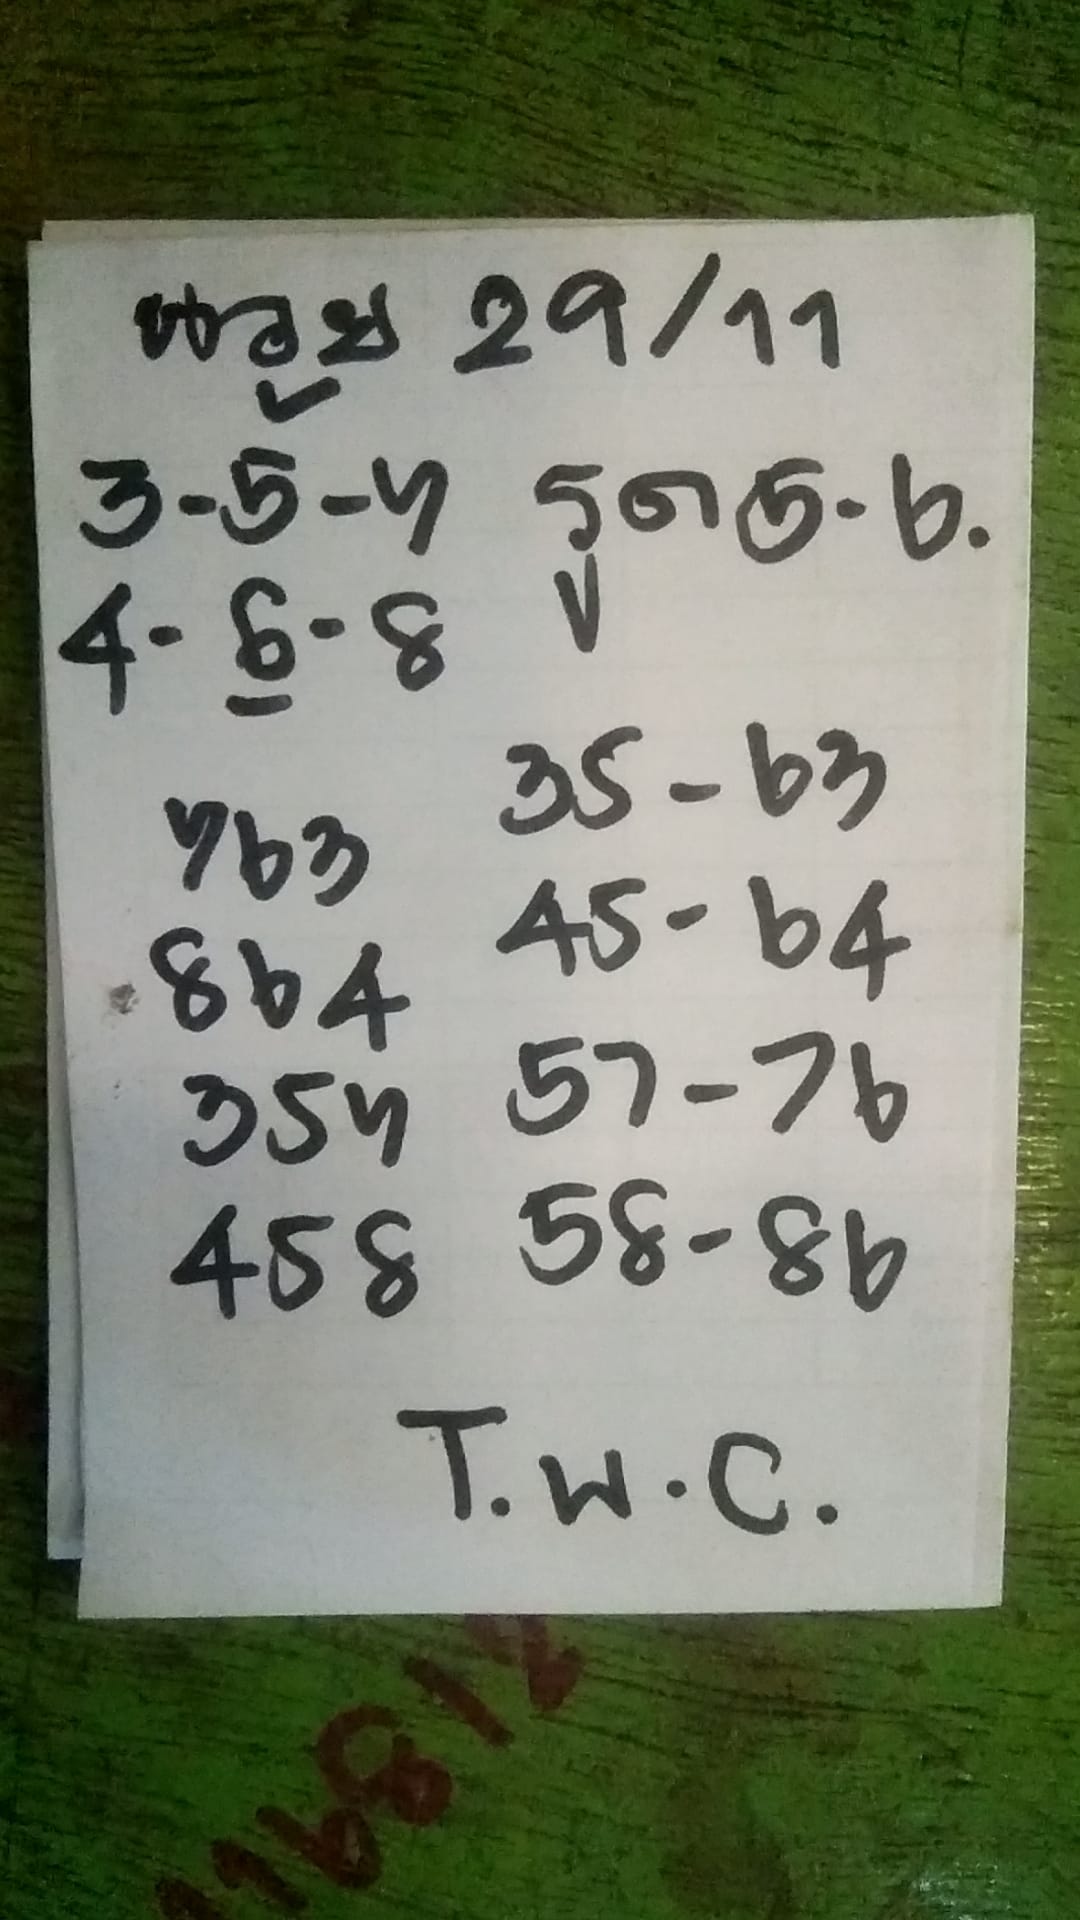 หวย 29/11
3-5-7 รูด 5-6.
4-6-8
35-63
763
45-64
864
57-76
357
58-86
458
T.W.C.